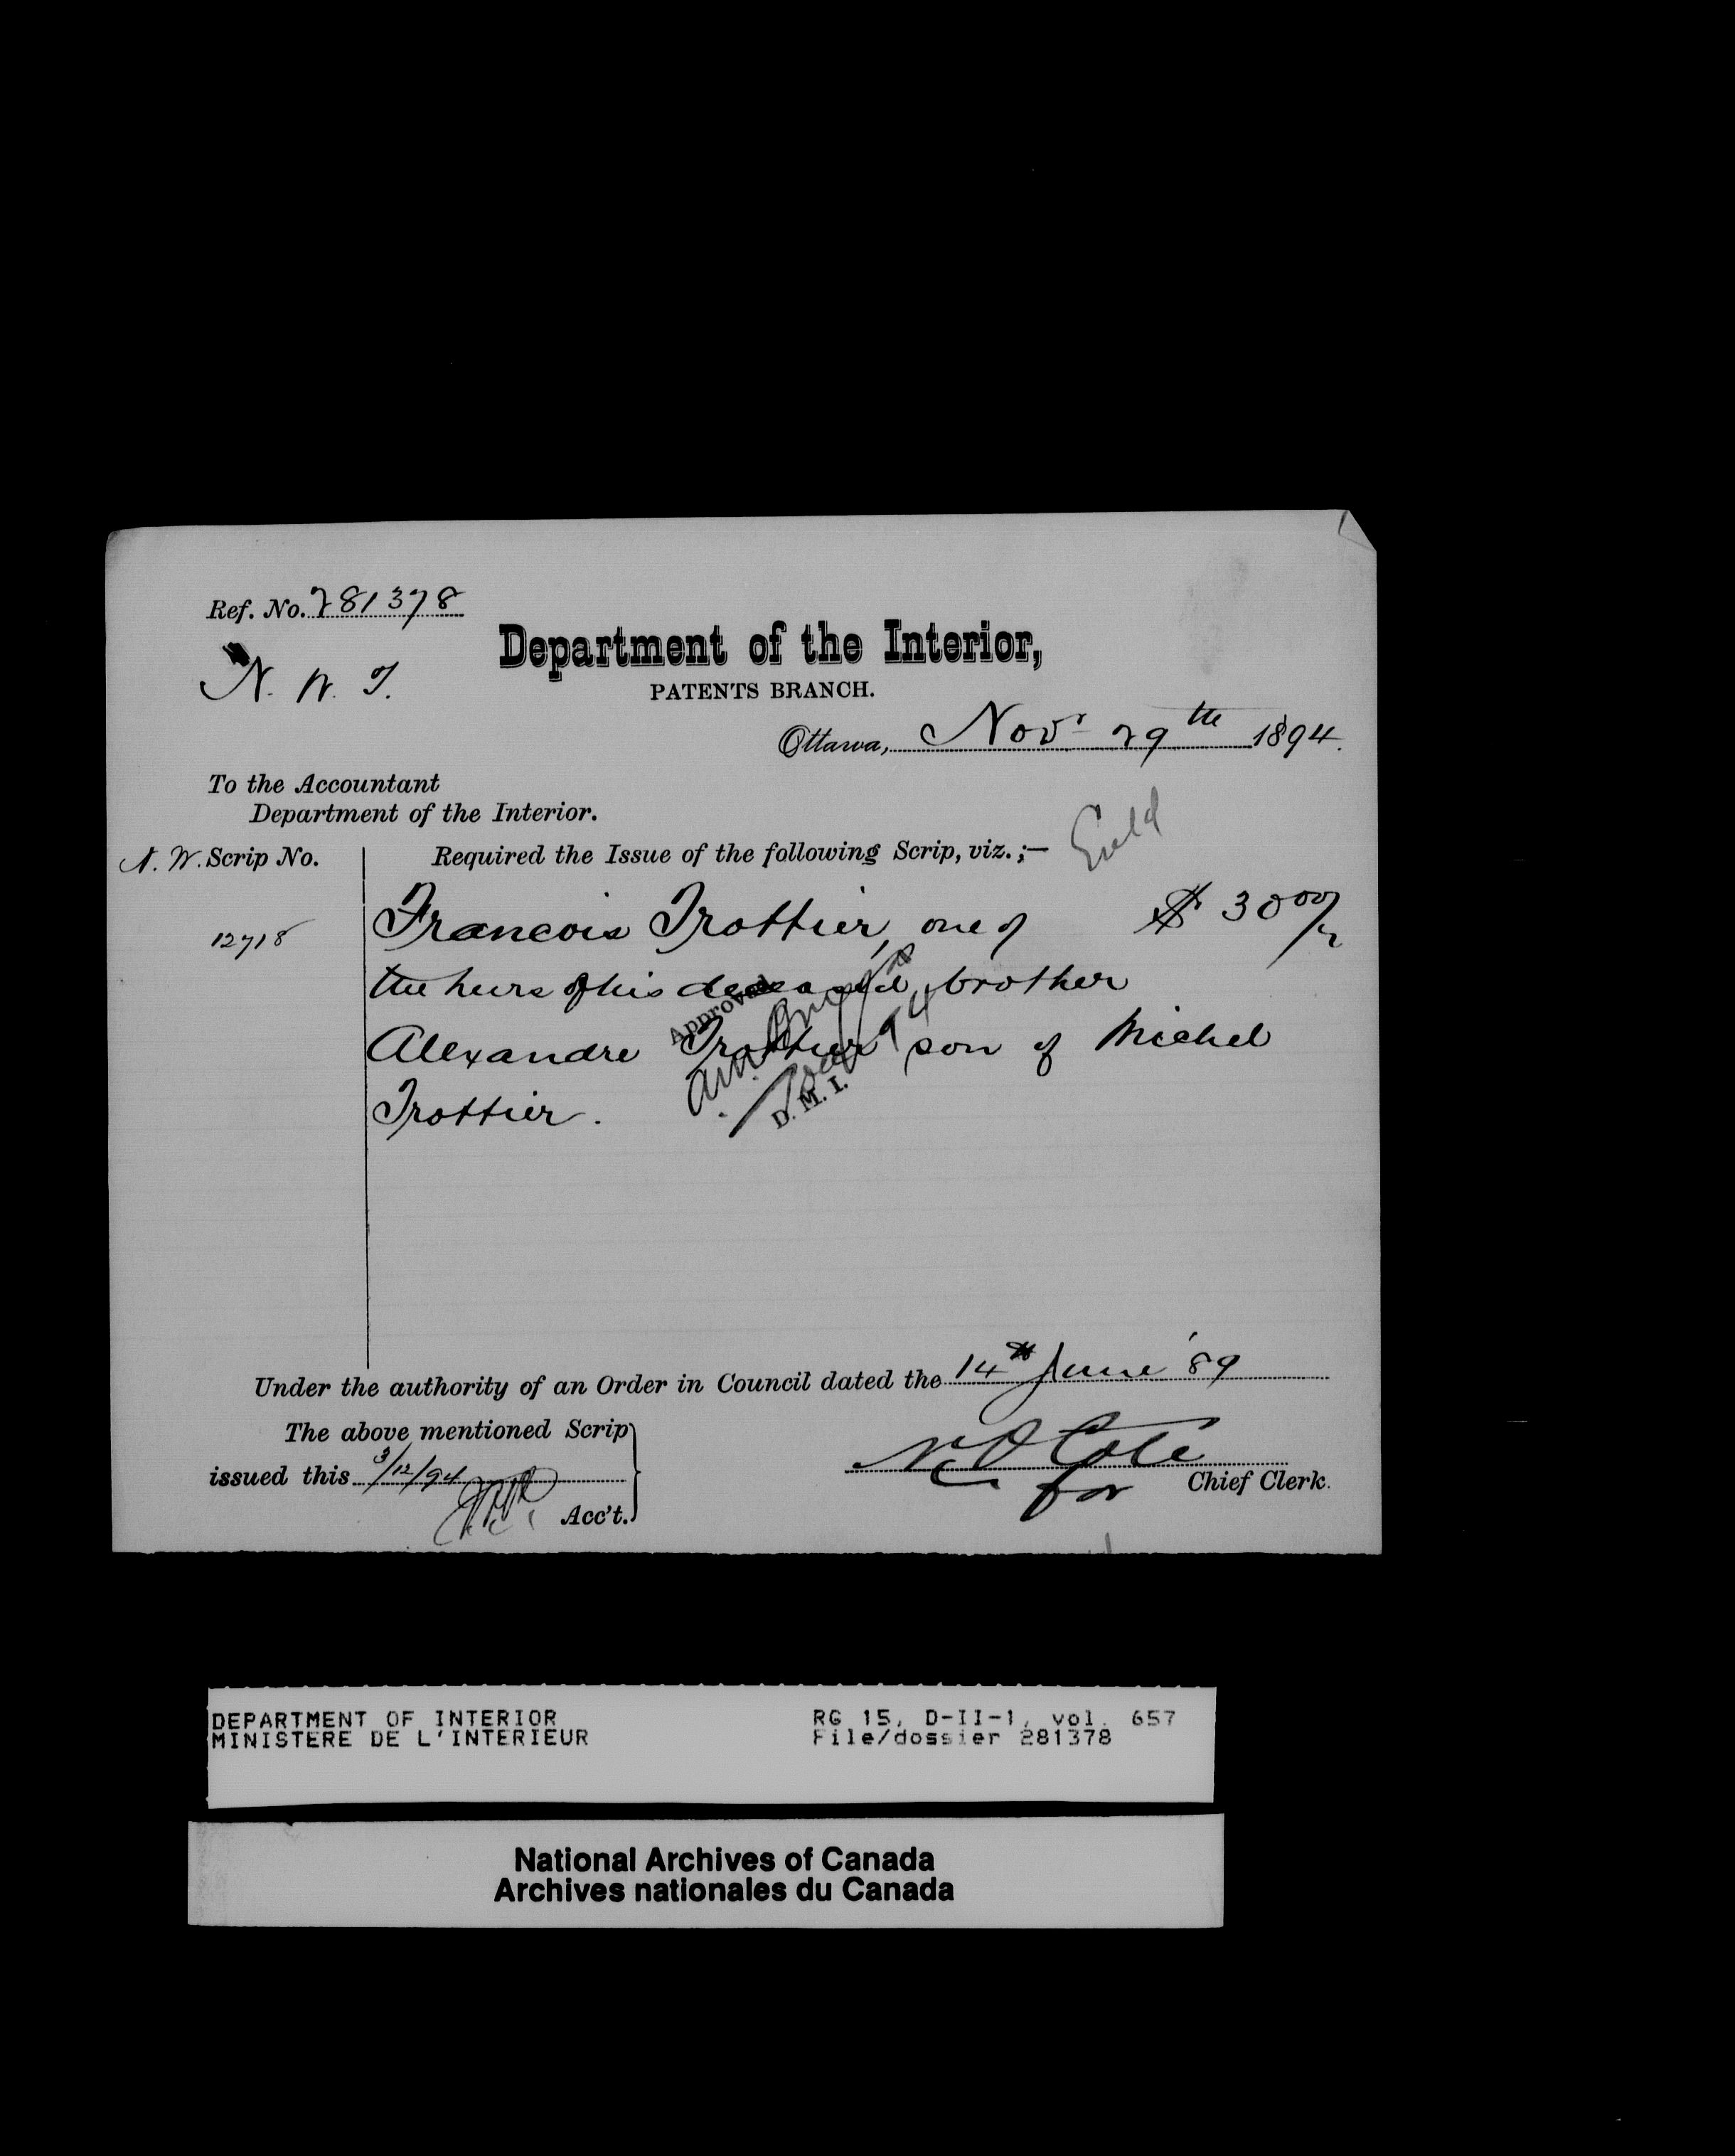 Ref. No. 281378
N. W. T.
Department of the Interior,
PATENTS BRANCH.
Ottawa, Novr 29th 1894.
To the Accountant
Department of the Interior.
N. W. Scrip No.
Required the Issue of the following Scrip, viz.;—
12718
Francois Trottier, one of $ 30 00/
the heirs of his deceased brother
Alexandre Trottier son of Michel
Trottier.
Approved
D. M. I.
Under the authority of an Order in Council dated the 14th June '89
The above mentioned Scrip
issued this 3/12/94
Acc't.
N O Coté
for Chief Clerk.
DEPARTMENT OF INTERIOR
MINISTERE DE L'INTERIEUR
RG 15, D-II-1, vol. 657
File/dossier 281378
National Archives of Canada
Archives nationales du Canada